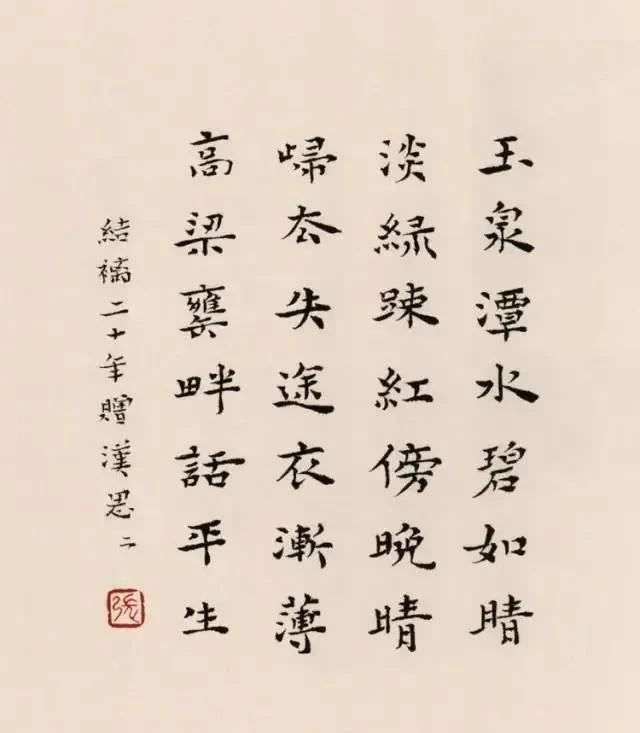 玉泉潭水碧如睛
淡緑踈紅傍晚晴
㱕厺失途衣漸薄
高梁罋畔話平生
結褵二十年贈漢思 二
張